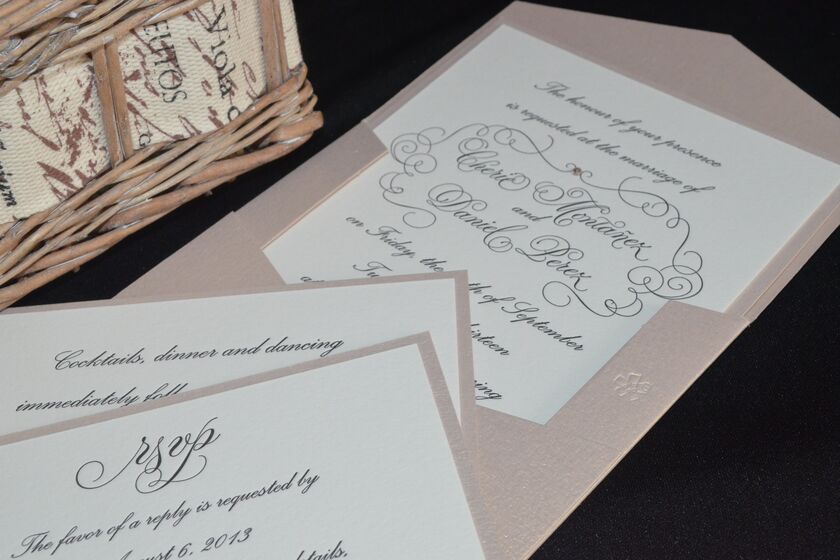 Viola
ELITOS
The honour of your presence
is requested at the marriage of
Cherie Montañez
and
Daniel Perez
on Friday, the
th of September
irteen
ing
Cocktails, dinner and dancing
immediately foll
rsvp
The favor of a reply is requested by
August 6, 2013
ktails,